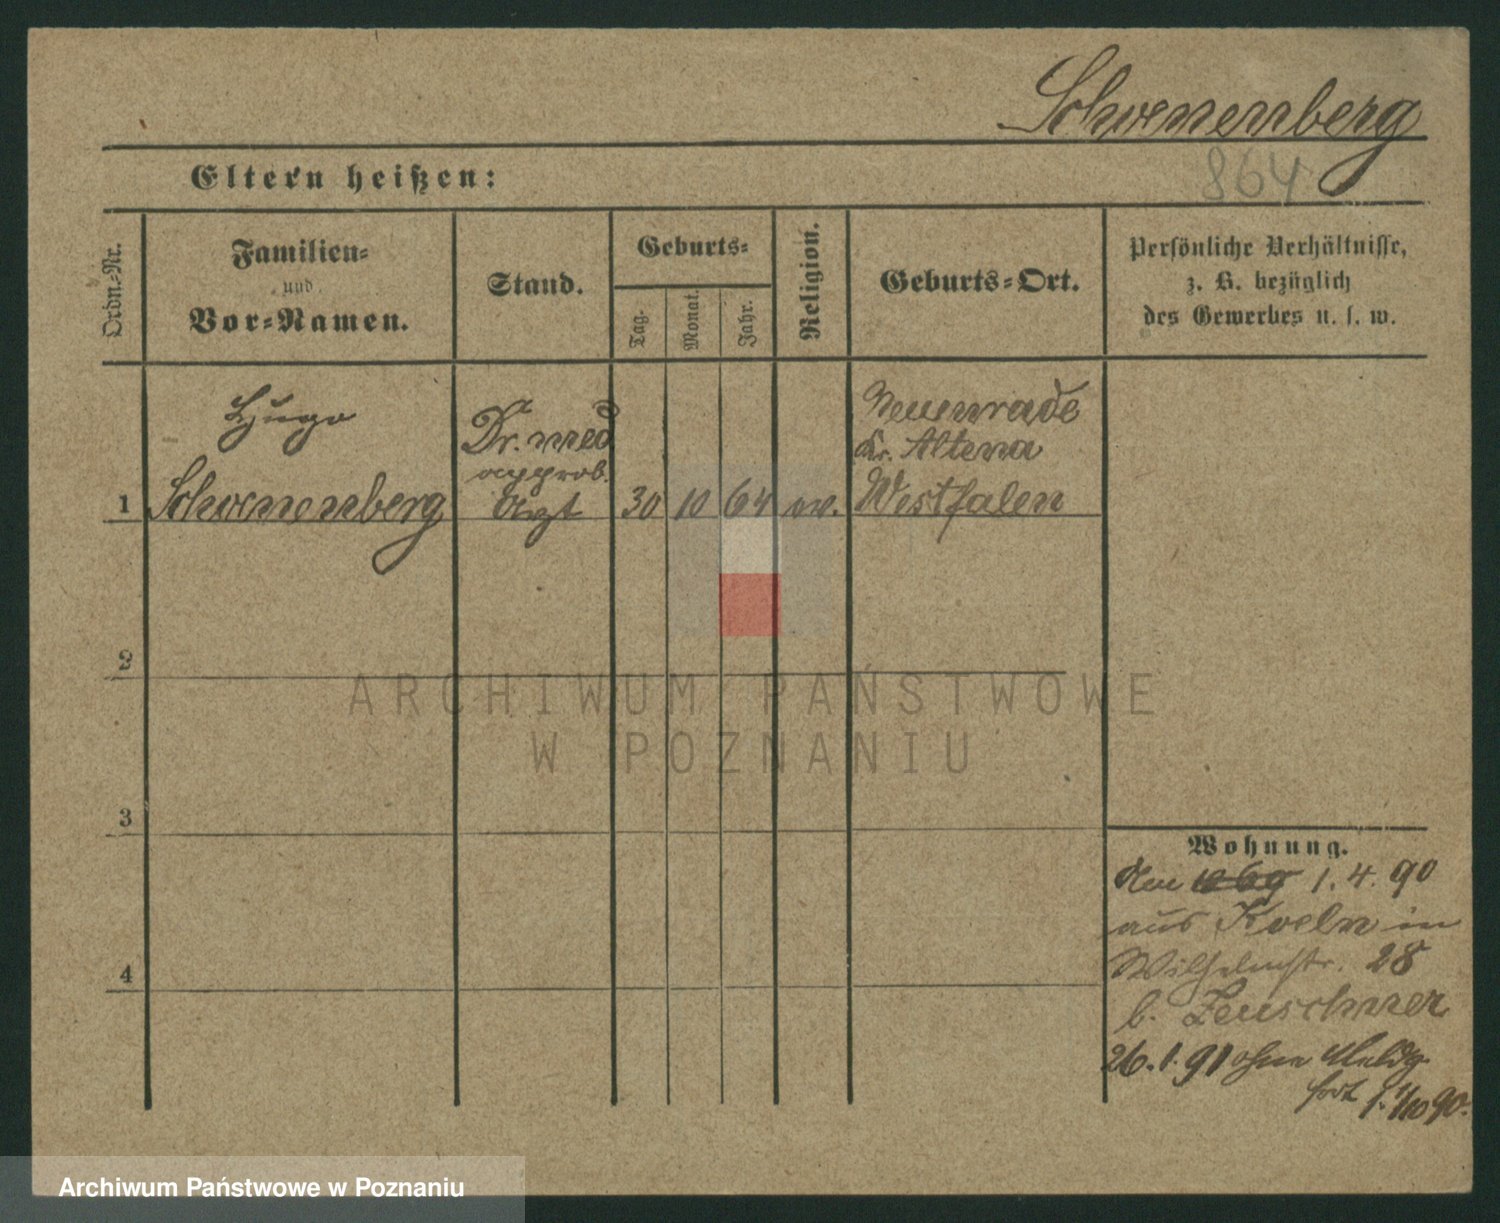 Schwenenberg
864
Eltern heißen:
Ordn.-Nr.
Familien-
und
Vor-Namen.
Stand.
Geburts-
Tag.
Monat.
Jahr.
Religion.
Geburts-Ort.
Persönliche Verhältnisse,
z. B. bezüglich
des Gewerbes u. s. w.
Hugo
Dr. med
Neuenrade
approb.
Kr. Altena
1 Schwenenberg Arzt 30 10 64 ev. Westfalen
2
3
4
Wohnung.
den 1.4.90
aus Koeln in
Wilhelmstr. 28
b. Zeuschner
26.1.91 ohne Meldg.
fort 1/10 90.
ARCHIWUM PAŃSTWOWE
W POZNANIU
Archiwum Państwowe w Poznaniu